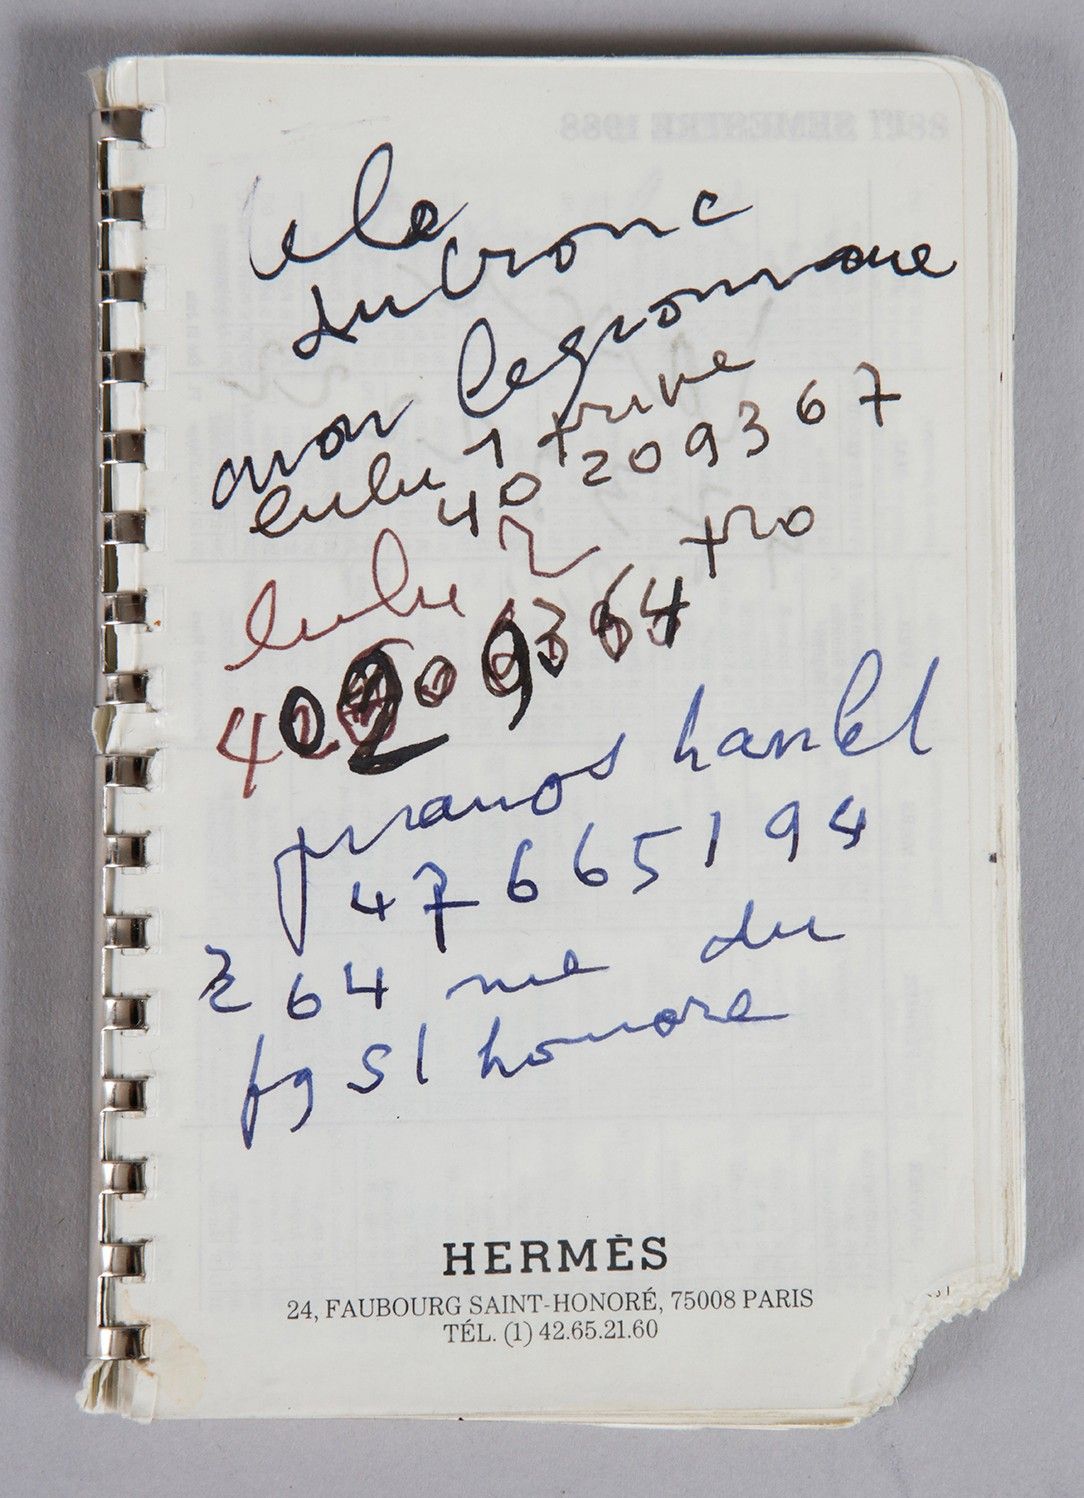 dutronc
mon legionnaire
lulu 1
40209367
lulu 2 tro
40209364
pianos hanlet
47665194
264 rue du
fg St honore
HERMÈS
24, FAUBOURG SAINT-HONORÉ, 75008 PARIS
TÉL. (1) 42.65.21.60